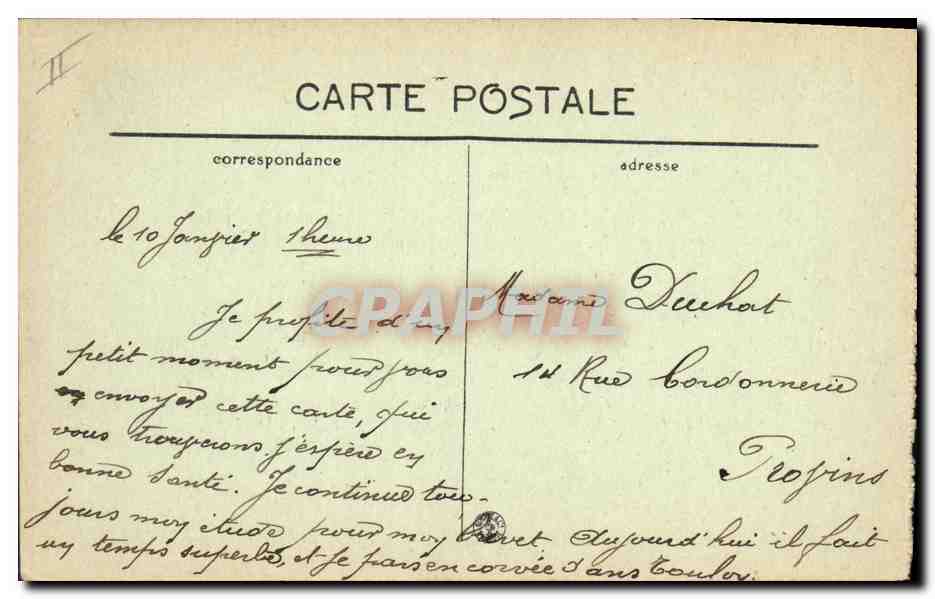 II
CARTE POSTALE
correspondance
adresse
le 10 Janvier 1 heure
Je profite d'un
petit moment pour vous
envoyer cette carte, qui
vous trouverons j'espère en
bonne santé. Je continue tou-
jours mon étude pour mon brevet. Aujourd'hui il fait
un temps superbe, et je pars en corvée dans Toulon.
Madame Duchat
14 Rue Cordonnerie
Provins
CPAPHIL